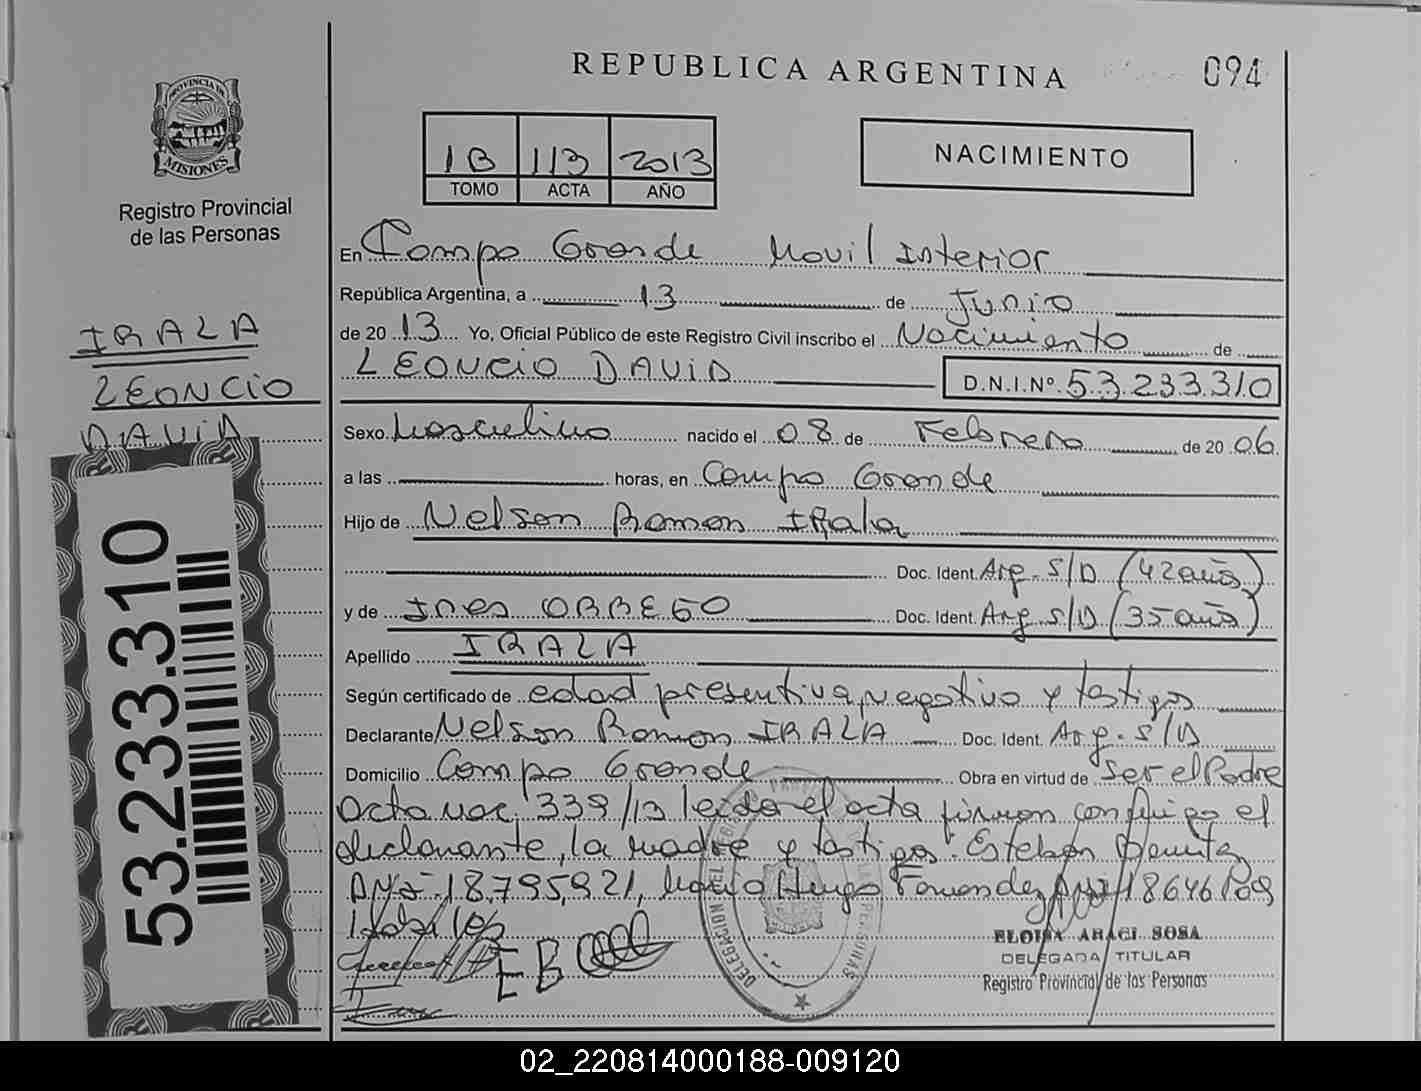 REPUBLICA ARGENTINA
094
PROVINCIA DE
MISIONES
Registro Provincial
de las Personas
1B 113 2013
TOMO ACTA AÑO
NACIMIENTO
En Campo Grande Movil Interior
República Argentina, a 13 de Junio
de 2013 Yo, Oficial Público de este Registro Civil inscribo el Nacimiento de
LEONCIO DAVID D.N.I.Nº 53.233.310
IRALA
LEONCIO
DAVID
53.233.310
Sexo Masculino nacido el 08 de Febrero de 2006
a las horas, en Campo Grande
Hijo de Nelson Ramon IRala
Doc. Ident. Arg. S/D (42 años)
y de Ines ORREGO Doc. Ident. Arg S/D (35 años)
Apellido IRALA
Según certificado de edad presentiva, negativo y testigos
Declarante Nelson Ramon IRALA Doc. Ident. Arg. S/D
Domicilio Campo Grande Obra en virtud de ser el Padre
Acta nac. 339/13 leida el acta firman conmigo el
declarante, la madre y testigos. Esteban
18.795.921, Hugo Fernandez 18646
EB
ELOISA ARACI SOSA
DELEGADA TITULAR
Registro Provincial de las Personas
02_220814000188-009120